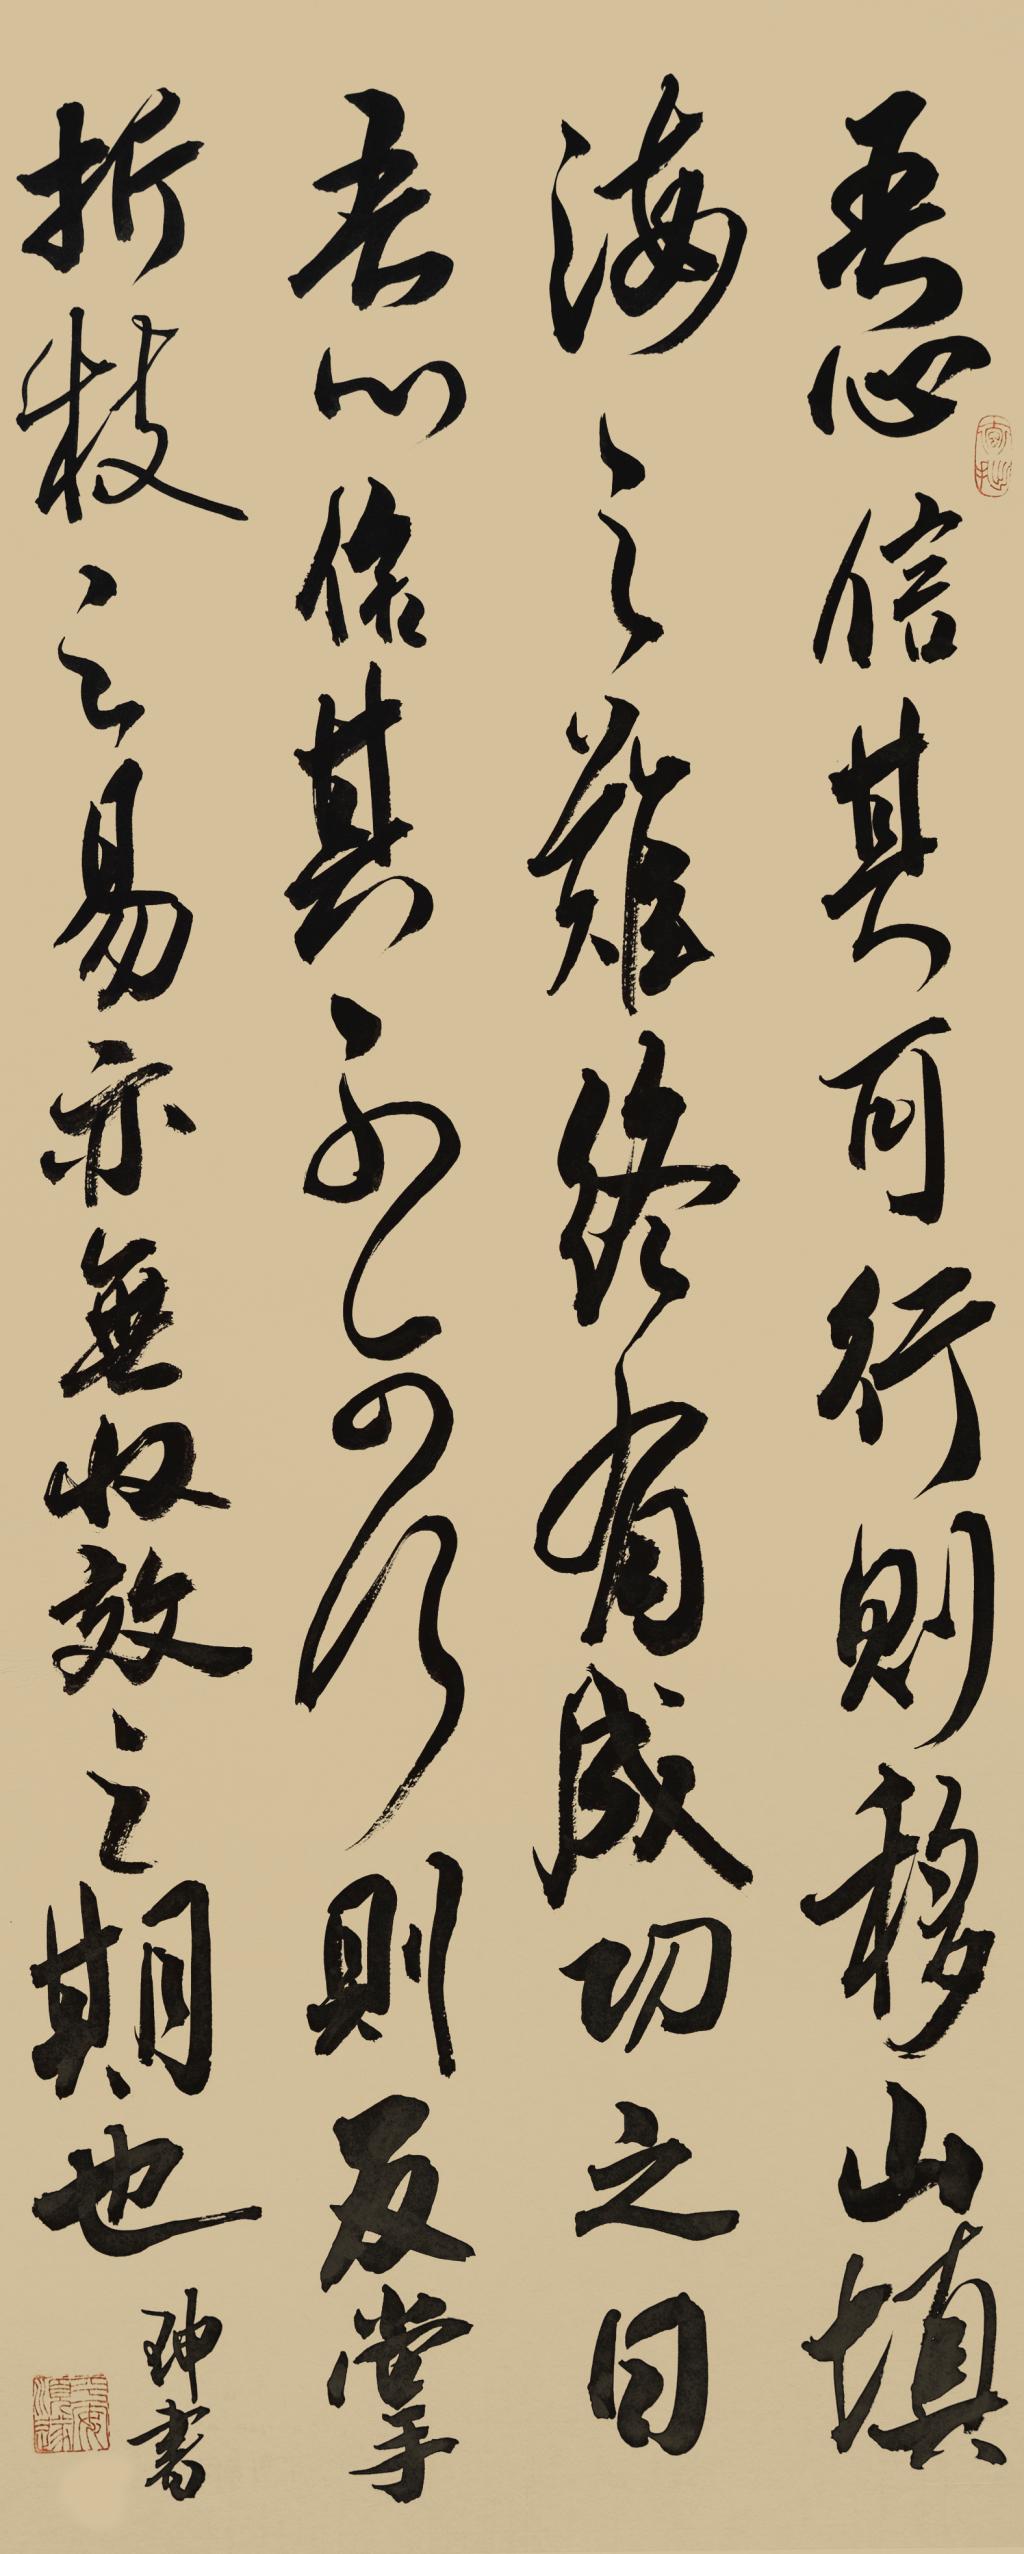 吾心信其可行則移山填
海之難終有成功之日
吾心信其不可行則反掌
折枝之易亦無收效之期也
珅書